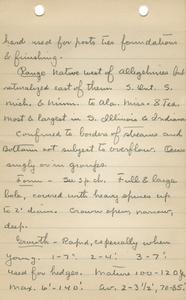 hard used for posts ties foundations
& finishing.
Range Native west of Alleghenies but
naturalized east of them. S. Ont. S.
Mich. & Minn. to Ala. Miss. & Tex.
Most & largest in S. Illinois & Indiana
Confined to borders of streams and
bottoms not subject to overflow. Occurs
singly or in groups.
Form - See Sp. ch. Full & large
bole, covered with heavy spines up
to 2' diam. Crown open, narrow,
deep.
Growth - Rapid, especially when
young. 1-7" 2-4' 3-7'
used for hedges. Mature 100-120 yr.
Max. 6'-140' Av. 2-3½', 70-85'